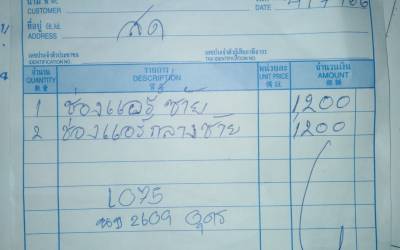 CUSTOMER
DATE 4/7/66
ที่อยู่
ADDRESS สด
เลขประจำตัวประชาชน
IDENTIFICATION NO.
เลขประจำตัวผู้เสียภาษีอากร
TAX IDENTIFICATION NO.
จำนวน รายการ หน่วยละ จำนวนเงิน
QUANTITY DESCRIPTION UNIT PRICE AMOUNT
數量
1 ช่องแอร์ ซ้าย 1200
2 ช่องแอร์กลางซ้าย 1200
L075
2609 อุดร